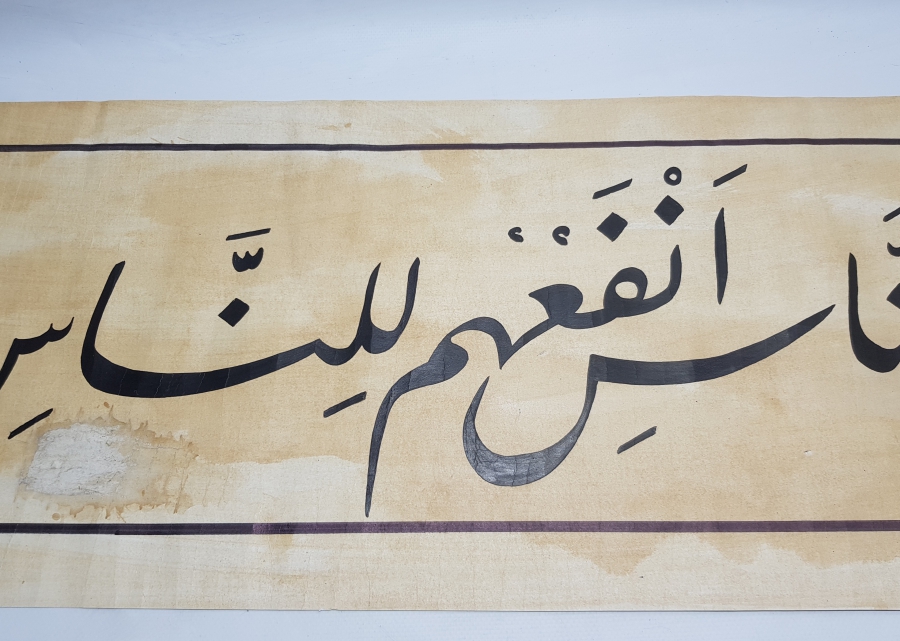 النَّاسِ اَنْفَعُهُمْ لِلنَّاسِ